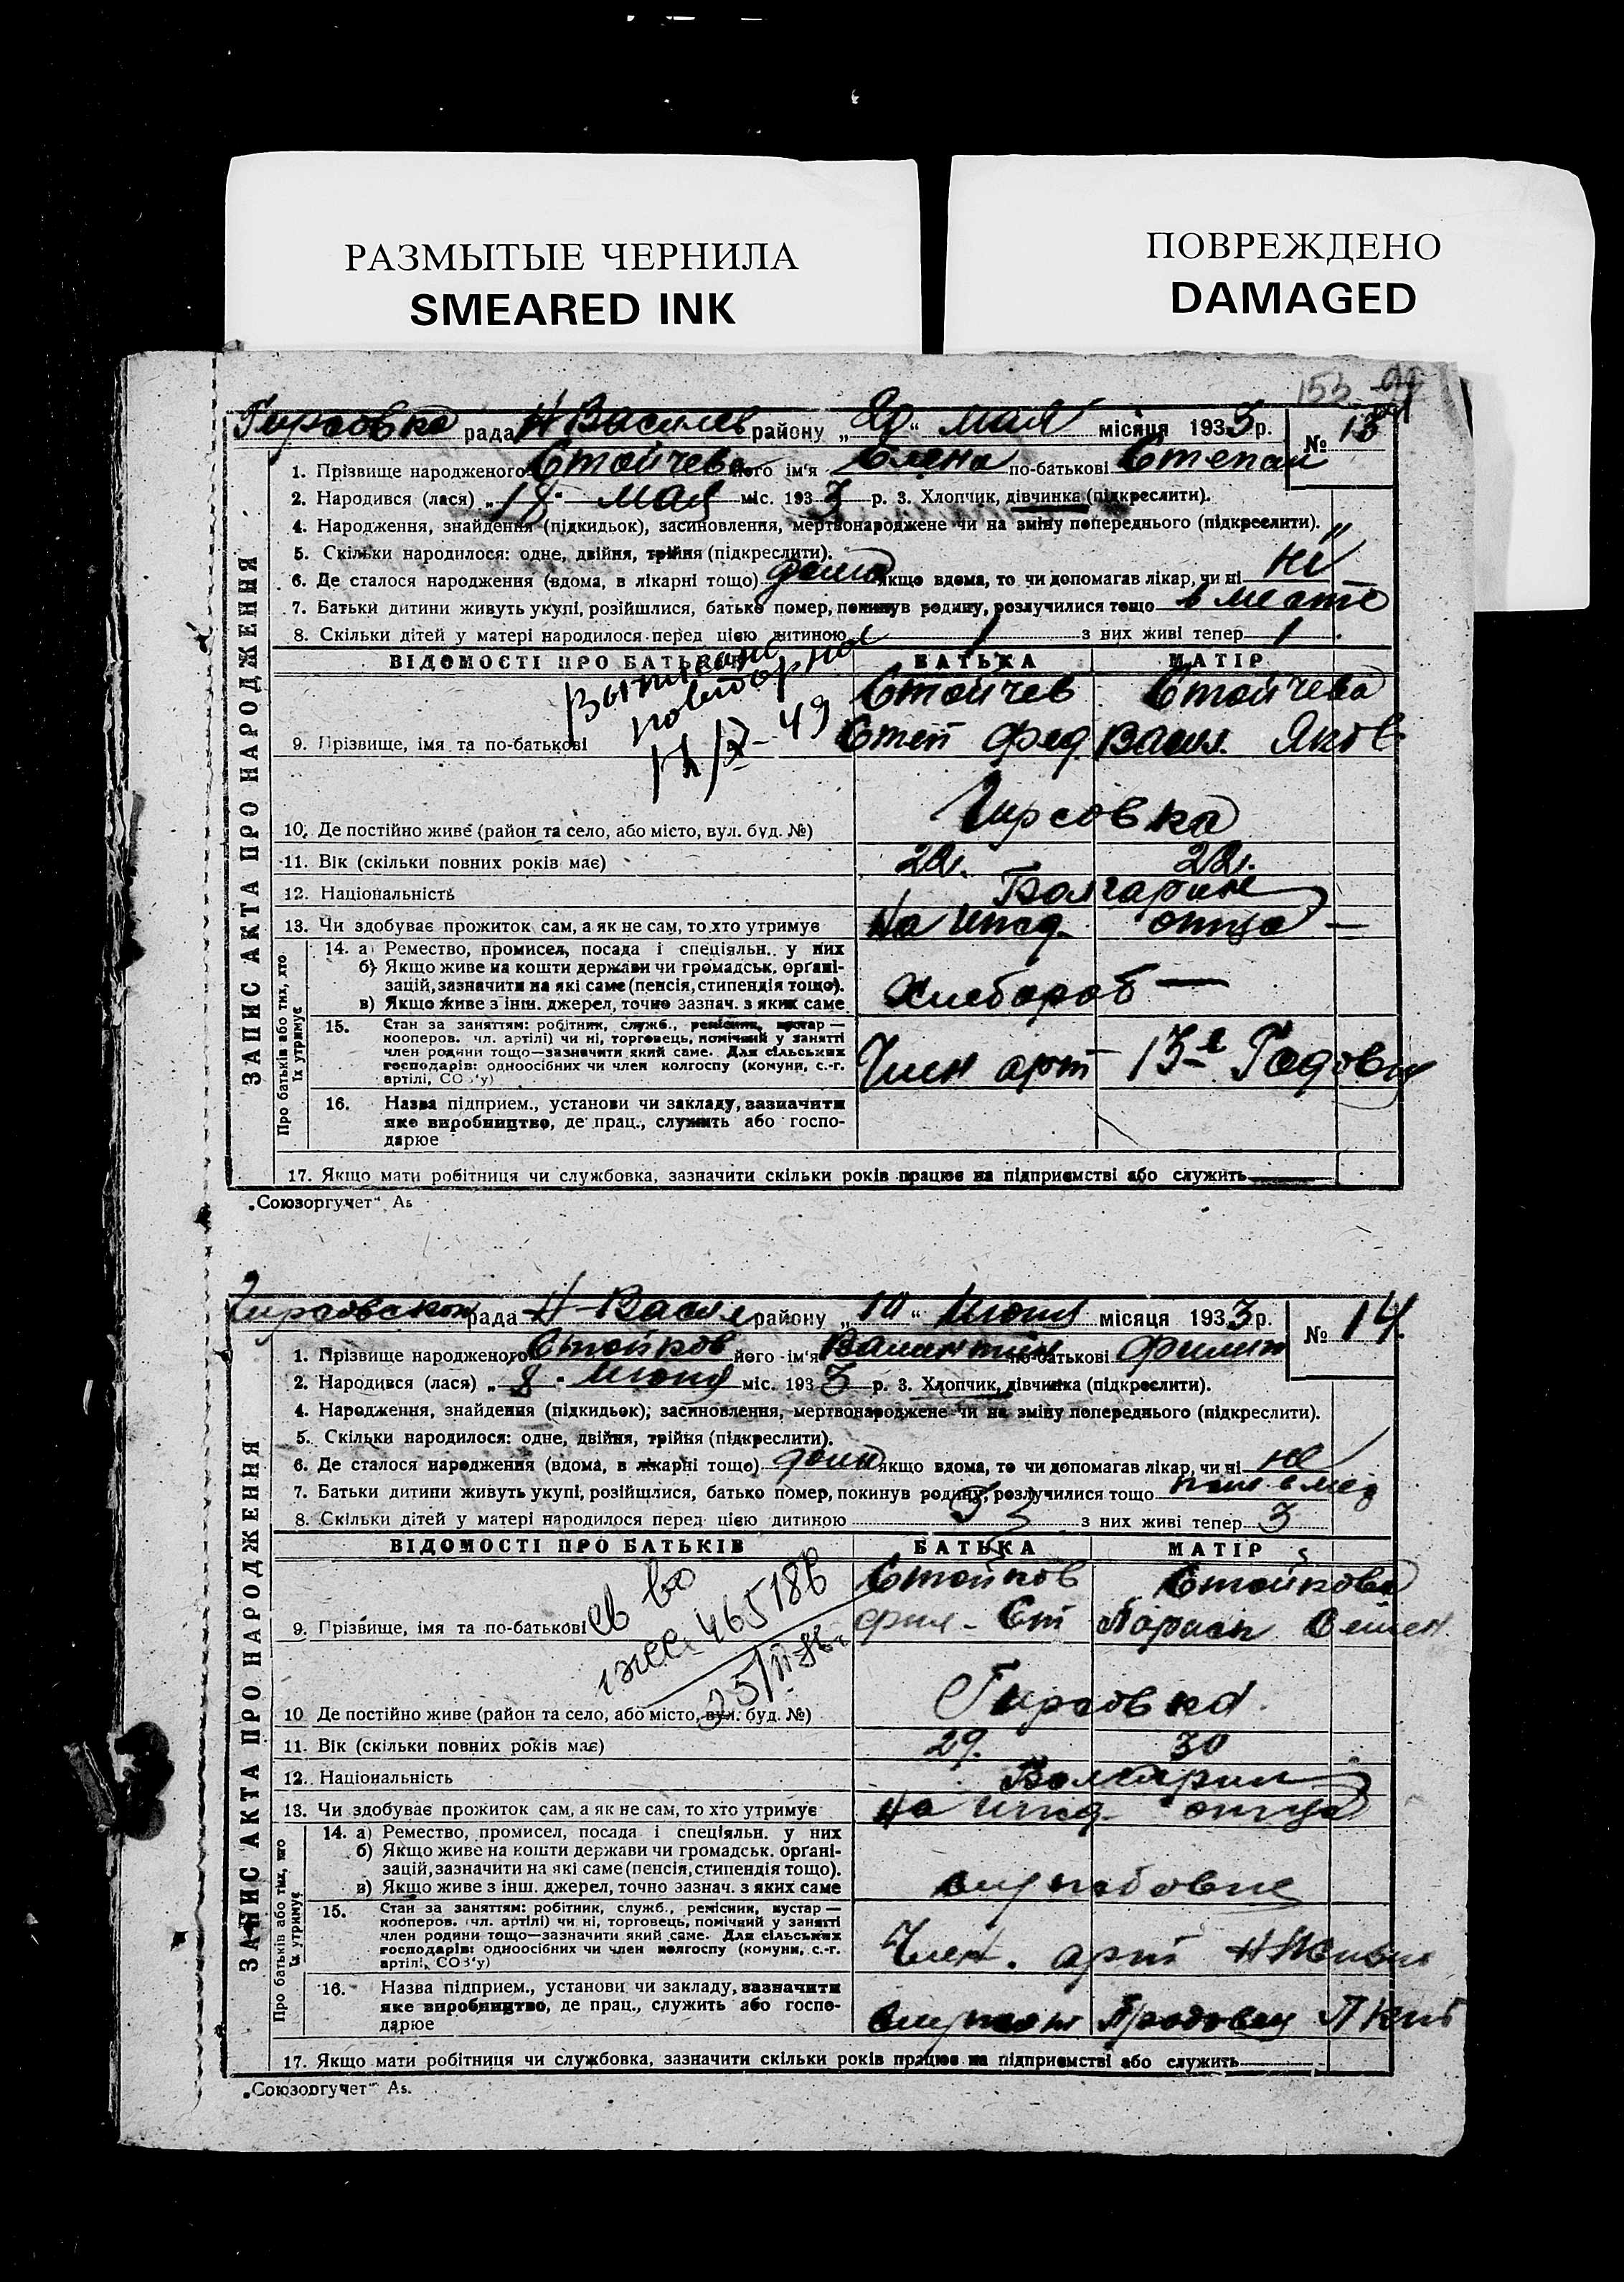 РАЗМЫТЫЕ ЧЕРНИЛА
SMEARED INK
ПОВРЕЖДЕНО
DAMAGED
153
Гирсовка рада Н Васильев району „20“ мая місяця 1933 р. № 13
1. Прізвище народженого Стойчева його ім'я Елена по-батькові Степан
2. Народився (лася) „18“ мая міс. 1933 р. 3. Хлопчик, дівчинка (підкреслити).
4. Народження, знайдення (підкидьок), засиновлення, мертвонароджене чи на зміну попереднього (підкреслити).
5. Скільки народилося: одне, двійня, трійня (підкреслити).
6. Де сталося народження (вдома, в лікарні тощо) дома якщо вдома, то чи допомагав лікар, чи ні ні
7. Батьки дитини живуть укупі, розійшлися, батько помер, покинув родину, розлучилися тощо в месте
8. Скільки дітей у матері народилося перед цією дитиною 1 з них живі тепер 1
ЗАПИС АКТА ПРО НАРОДЖЕННЯ
ВІДОМОСТІ ПРО БАТЬКІВ БАТЬКА МАТІР
повторно
49
Стойчев Стойчева
9. Прізвище, імя та по-батькові Степ Фед Васил. Яков
10. Де постійно живе (район та село, або місто, вул. буд. №) Гирсовка
11. Вік (скільки повних років має) 22г. 22г.
12. Національність Болгарин
13. Чи здобуває прожиток сам, а як не сам, то хто утримує на ижд. отца —
Про батьків або тих, хто їх утримує
14. а) Ремество, промисел, посада і спеціяльн. у них
б) Якщо живе на кошти держави чи громадськ. орґані-
зацій, зазначити на які саме (пенсія, стипендія тощо).
в) Якщо живе з інш. джерел, точно зазнач. з яких саме
Хлебороб —
15. Стан за заняттям: робітник, служб., ремісник, кустар —
кооперов. чл. артілі) чи ні, торговець, помічний у занятті
член родини тощо—зазначити який саме. Для сільських
господарів: одноосібних чи член колгоспу (комуни, с.-г.
артілі, СОЗ'у)
Член арт 13-е Годовщ
16. Назва підприєм., установи чи закладу, зазначити
яке виробництво, де прац., служить або госпо-
дарює
17. Якщо мати робітниця чи службовка, зазначити скільки років працює на підприємстві або служить
„Союзоргучет“ А5
Гирсовской рада Н-Васил району „10“ июня місяця 1933 р. № 14
1. Прізвище народженого Стойков його ім'я Валентин по-батькові Филип
2. Народився (лася) „8“ июня міс. 1933 р. 3. Хлопчик, дівчинка (підкреслити).
4. Народження, знайдення (підкидьок), засиновлення, мертвонароджене чи на зміну попереднього (підкреслити).
5. Скільки народилося: одне, двійня, трійня (підкреслити).
6. Де сталося народження (вдома, в лікарні тощо) дома якщо вдома, то чи допомагав лікар, чи ні не
7. Батьки дитини живуть укупі, розійшлися, батько помер, покинув родину, розлучилися тощо
8. Скільки дітей у матері народилося перед цією дитиною 3 з них живі тепер 3
ЗАПИС АКТА ПРО НАРОДЖЕННЯ
ВІДОМОСТІ ПРО БАТЬКІВ БАТЬКА МАТІР
св во
465186
Стойков Стойкова
9. Прізвище, імя та по-батькові Фил - Ст Парас Семен
10 Де постійно живе (район та село, або місто, вул. буд. №) Гирсовка
11. Вік (скільки повних років має) 29. 30
12. Національність Болгарин
13. Чи здобуває прожиток сам, а як не сам, то хто утримує на ижд. отца
Про батьків або тих, хто їх утримує
14. а) Ремество, промисел, посада і спеціяльн. у них
б) Якщо живе на кошти держави чи громадськ. орґані-
зацій, зазначити на які саме (пенсія, стипендія тощо).
в) Якщо живе з інш. джерел, точно зазнач. з яких саме
15. Стан за заняттям: робітник, служб., ремісник, кустар —
кооперов. чл. артілі) чи ні, торговець, помічний у занятті
член родини тощо—зазначити який саме. Для сільських
господарів: одноосібних чи член колгоспу (комуни, с.-г.
артілі, СОЗ'у)
Член. арт Н Жизнь
16. Назва підприєм., установи чи закладу, зазначити
яке виробництво, де прац., служить або госпо-
дарює
17. Якщо мати робітниця чи службовка, зазначити скільки років працює на підприємстві або служить
„Союзоргучет“ А5.